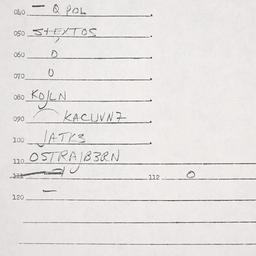 040 — Q POL
050 STEXTOS
060 0
070 0
080 KOJLN
090 KACUVN7
100 JATK3
110 OSTRAJB3RN
112 0
120 —